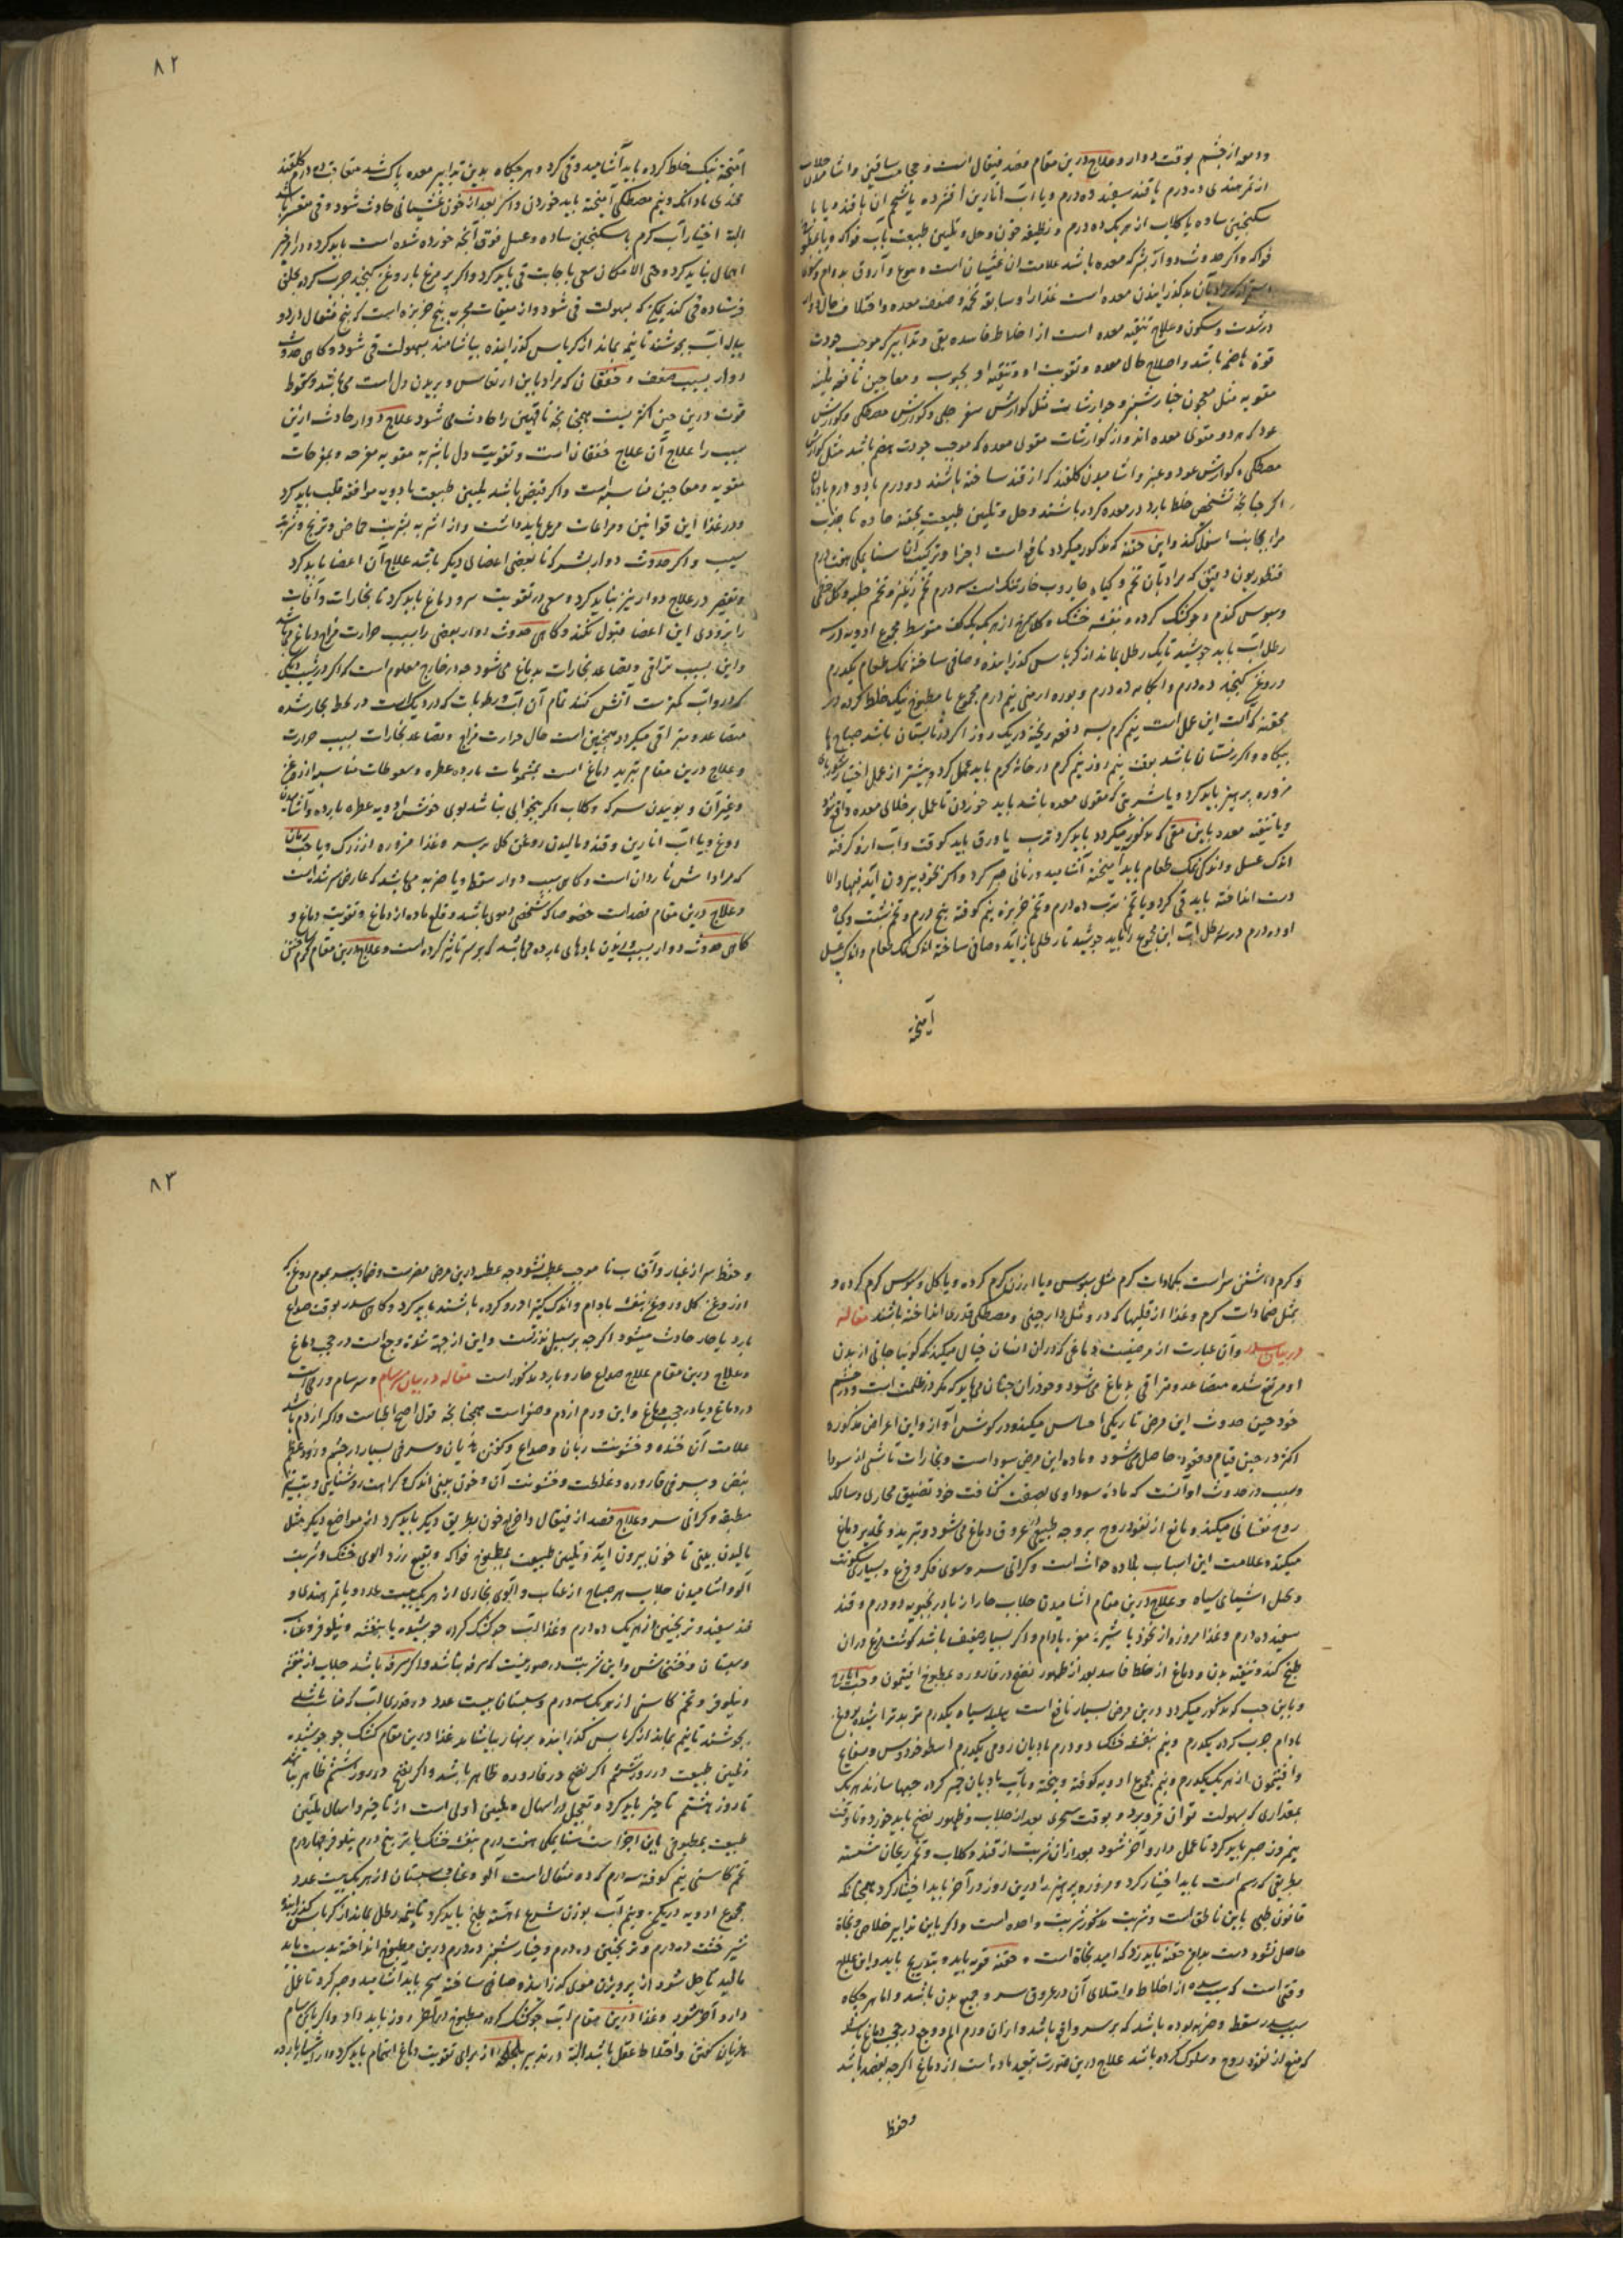 ودمعه از چشم بوقت دوار و علاج درین مقام فصد قیفال است و حجامت ساقین و اشامیدن جلاب
از تمر هندی ده درم با قند سفید ده درم و یا آب انارین افشرده با شحم آن با قند و یا با
سکنجبین ساده با کلاب از هر یک ده درم و تلطیف خون و حل و تلیین طبیعت بآب فواکه و یا بمطبوخ
فواکه و اکر حدوث دوار بشرکه معده باشد علامت آن غثیان است و تهوع و آروق بدوام و
معده است غذا را و سابقه تخمه و ضعف معده و اختلاف حال دوار
در شدت و سکون و علاج تنقیه معده است از اخلاط فاسده بقی و تدابیر که موجب جودت
قوة هاضمه باشد و اصلاح حال معده و تقویت او و تنقیه او بحبوب و معاجین نافعه ملینه
مقویه مثل معجون خیارشنبر و جوارشات مثل کوارش سفرجلی و کوارش مصطکی و کوارش
عود که هر دو مقوی معده اند و از کوارشات مقوی معده که موجب جودت هضم باشد مثل کوارش
مصطکی و کوارش عود و عنبر و اشامیدن کلقند که از قند ساخته باشند دو درم با دو درم بادیان
اکر چنانچه تشخص خلط بارد در معده کرده باشند و حل و تلیین طبیعت بحقنه حاده تا جذب
مواد بجانب اسفل کند و این حقنه که مذکور میکردد نافع است اجزا و ترکیب آن سنا مکی هفت درم
قنطوریون دقیق که مراد بآن تخم و کیاه جاروب خار تنک است سه درم تخم زغیر و تخم حلبه و کل خطمی
و سبوس کندم و جو کشک کرده و بنفشه خشک و کلسرخ از هر یک یک کف متوسط مجموع ادویه در سه
رطل آب باید جوشید تا یک رطل بماند از کرباس کذرانیده و صافی ساخته نمک طعام یکدرم
و روغن کنجد ده درم و آبکامه ده درم و بوره ارمنی نیم درم مجموع با مطبوخ نیک خلط کرده در
محقنه که آلت این عمل است نیم کرم بسه دفعه ریخته در یک روز اکر در تابستان باشد صباح یا
بیکاه و اکر زمستان باشد بوقت نیم روز نیم کرم در خانه کرم باید عمل کرد و بیشتر از عمل اختیار
مزوره پرهیز باید کرد و یا شربتی که مقوی معده باشد باید خوردن تا عمل بر خلای معده واقع شود
و یا تنقیه معده باین مقی که مذکور میکردد باید کرد ترب با ورق باید کوفت و آب ازو کرفته
اندک عسل و اندکی نمک طعام باید آمیخته آشامید و زمانی صبر کرد و اکر بخود بیرون آید فبها والا
دست انداخته باید قی کرد و یا تخم ترب ده درم و تخم خربزه نیم کوفته پنج درم و تخم شبت و کیاه
او ده درم در سه رطل آب این مجموع را باید جوشید تا رطلی باز آید و صافی ساخته اندک نمک طعام و اندک عسل
آمیخته
۸۲
آمیخته نیک خلط کرده باید آشامید و قی کرد و هرجکاه بدین تدابیر معده پاک شد متعاقب ده درم کلقند
قندی با دانک و نیم مصطکی آمیخته باید خوردن و اکر بعد از خون غثیانی حادث شود و قی متعسر باشد
البته اختیار آب کرم با سکنجبین ساده و عسل فوق آنچه خورده شده است باید کرد و در او خیر
اهمال نباید کرد و حتی الامکان سعی باجابت قی باید کرد و اکر پر مرغ با روغن کنجید چرب کرده بحلق
فرستاده قی کند یمکن که بسهولت قی شود و از مقیات مجربه پنج خربزه است که پنج مثقال در دو
پیاله آب بجوشند تا نیم بماند از کرباس کذرانیده بیاشامند بسهولت قی شود و کاهی حدوث
دوار بسبب ضعف و خفقان که مراد باین ارتعاس و پریدن دل است می باشد و سقوط
قوت درین حین اکثریست همچنانچه ناقهین را حادث می شود علاج دوار حادث ازین
سبب را علاج آن علاج خفقان است و تقویت دل باشربه مقویه مفرحه و بمفرحات
مقویه و معاجین مناسبه است و اکر قبض باشد تلیین طبیعت بادویه موافقه قلب باید کرد
و در غذا این قوانین و مراعات مرعی باید داشت و از اشربه بشربت حماض و ترنج و شربت
سیب و اکر حدوث دوار بشرکت بعضی اعضای دیکر باشد علاج آن اعضا باید کرد
و تقصیر در علاج دوار نیز نباید کرد و سعی در تقویت سر و دماغ باید کرد تا بخارات و آفات
را بزودی این اعضا قبول نکند و کاهی حدوث دوار بعضی را بسبب حرارت مزاج دماغ می باشد
و این بسبب تراقی و تصاعد بخارات بدماغ می شود چه در خارج معلوم است که اکر در شیب دیکی
که درو آب کمترست آتش کنند تمام آن آب و رطوبات که در دیک است در لحظه بخار شده
متصاعد و متراقی میکردد همچنین است حال حرارت مزاج و تصاعد بخارات بسبب حرارت
و علاج درین مقام تبرید دماغ است بمشمومات بارده عطره و سعوطات مناسبه از روغن
و غیر آن و بوییدن سرکه و کلاب اکر بیخوابی نباشد بوی خوش ادویه عطره بارده و آشامیدن
دوغ و یا آب انارین و قند و مالیدن روغن کل بر سر و غذا مزوره از زرک و یا حب رمان
که مراد اش ناردان است و کاهی سبب دوار سقطه و یا ضربه میباشد که عارض سر شده است
و علاج درین مقام فصد است خصوصا که شخص دموی باشد و قلع ماده از دماغ و تقویت دماغ و
کاهی حدوث دوار بسبب بیرون بادهای بارده می باشد که بر سر تاثیر کرده است و علاج درین مقام کرم داشتن
و کرم داشتن سر است بکمادات کرم مثل سبوس و یا ارزن کرم کرده و یا کل و سبوس کرم کرده و
بمثل ضمادات کرم و غذا از قلیها که درو مثل دارچینی و مصطکی قدری انداخته باشند مقاله
در بیان سدر و آن عبارت از مرضیست دماغی که در آن انسان خیال میکند که کوئیا جانی از بدن
او مرتفع شده متصاعد و متراقی بدماغ می شود و خود را نچنان می یابد که مکر در ظلمت است و در چشم
خود حین حدوث این مرض تاریکی احساس میکند و در کوش آواز و این اعراض مذکوره
اکثر در حین قیام و قعود حاصل می شود و ماده این مرض سوداست و بخارات ناشی از سودا
و سبب در حدوث او آنست که ماده سوداوی بصفت کثافت خود تضییق مجاری و مسالک
روح نفسانی میکند و مانع از نفوذ روح بر وجه طبیعی در عروق دماغ می شود و تبرید و تخدیر دماغ
میکند و علامت این اسباب بلاده حواس است و کرانی سر و سوی فکر و فزع و بسیاری سکوت
و تخیل اشیای سیاه و علاج درین مقام اشامیدن جلاب حار از بادرنجبویه دو درم و قند
سفید ده درم و غذا مزوره از نخود با شیرهٔ مغز بادام و اکر بسیار ضعیف باشد کوشت مرغ در آن
طبخ کند و تنقیه بدن و دماغ از خلط فاسد بعد از ظهور نضج در قاروره بمطبوخ افتیمون و حب ایارج
و باین حب که مذکور میکردد درین مرض بسیار نافع است هلیله سیاه یکدرم تربد تراشیده بروغن
بادام چرب کرده یکدرم و نیم بنفشه خشک دو درم بادیان رومی یکدرم اسطوخودوس و بسفایج
و افتیمون از هر یک یکدرم و نیم مجموع ادویه کوفته و بیخته و بآب بادیان خمیر کرده حبها سازند هر یک
بمقداری که بسهولت توان فرو برد و بوقت سحری بعد از جلاب و ظهور نضج باید خورد و تا وقت
نیمروز صبر باید کرد تا عمل دارو آخر شود بعد از آن شربت از قند و کلاب و تخم ریحان شسته
بطریقی که رسم است باید اختیار کرد و مزوره پرهیز را درین روز در آخر باید اختیار کرد همچنانکه
قانون طبی باین ناطق است و شربت مذکور شربت واحده است و اکر باین تدابیر خلاص و نجاة
حاصل نشود دست بدامغ حقنه باید زد که امید نجاة است و حقنه قویه باید و بتدریج باید و این علاج
وقتی است که سبب سدره از اخلاط و امتلای آن در عروق سر و جمیع بدن باشد و اما هرجکاه
سبب سدر سقطه و ضربه بوده باشد که بر سر واقع باشد و از آن ورم الم و وجع در حجب دماغ باشد
که منع از نفوذ روح و سلوک کرده باشد علاج درین صورت تبعید ماده است از دماغ اکرچه بفصد باشد
و حفظ
۸۳
و حفظ سر از غبار و آفتاب تا موجب عطسه نشود چه عطسه درین مرض مضرست و ضماد بر سر بموم روغن که
از روغن کل و روغن بنفشه بادام و اندک کتیرا درو کرده باشند باید کرد و کاهی سدر بوقت صداع
بارد یا حار حادث میشود اکرچه بر سبیل ندرتست و این از جهة شدة وجع است در حجب دماغ
و علاج درین مقام علاج صداع حار و بارد مذکور است مقاله در بیان سرسام و سرسام ورمی است
در دماغ و یا در حجب دماغ و این ورم از دم و صفراست همچنانچه قول اصح اطباست و اکر از دم باشد
علامت آن خنده و خشونت زبان و صداع و کفتن هذیان و سرخی بسیار در چشم و رو و عظم
نبض و سرخی قاروره و غلظت و خشونت آن و خون بینی اندک و کراهت روشنایی و تب
مطبقه و کرانی سر و علاج فصد از قیفال و اخراج خون بطریق دیکر باید کرد از مواضع دیکر مثل
مالیدن بینی تا خون بیرون آید و تلیین طبیعت بمطبوخ فواکه و بنقیع زرد آلوی خشک و شربت
آلو و اشامیدن جلاب هر صباح از عناب و آلوی بخاری از هر یک بیست عدد و یا تمر هندی و
قند سفید و ترنجبین از هر یک ده درم و غذا آب جو کشک کرده جوشیده با بنفشه و نیلوفر و عناب
و سپستان و خشخاش و این شربت در صورتیست که سرفه نباشد و اکر سرفه باشد جلاب از بنفشه
و نیلوفر و تخم کاسنی از هر یک سه درم و سپستان بیست عدد در قدری آب که مناسب باشد
بجوشند تا نیم بماند از کرباس کذرانیده بر نهار بیاشامند غذا درین مقام کشک جو جوشیده
و تلیین طبیعت در روز ششم اکر نضج در قاروره ظاهر باشد و اکر نضج در روز ششم ظاهر نباشد
تا روز هشتم تاخیر باید کرد و تعجیل در اسهال و تلیین اولی است از تاخیر و اسهال و تلیین
طبیعت بمطبوخی باین اجزاست سنا مکی هفت درم بنفشه خشک یا تر پنج درم نیلوفر چهار درم
تخم کاسنی نیم کوفته سه درم که ده مثقال است آلو و عناب و سپستان از هر یک بیست عدد
مجموع ادویه در یکمن و نیم آب بوزن شرع آهسته طبخ باید کرد تا نیمه رطل بماند از کرباس کذرانیده
شیر خشت ده درم و ترنجبین ده درم و خیارشنبر ده درم درین مطبوخ انداخته بدست باید
مالید تا حل شود از پرویزن موی کذرانیده صافی ساخته سحر باید اشامید و صبر کرد تا عمل
دارو آخر شود و غذا درین مقام آب جو کشک کرده مطبوخ در آخر روز باید داد و اکر با این سرسام
هذیان کفتن و اختلاط عقل باشد البته در تدبیر از برای تقویت دماغ اهتمام باید کرد و از اشیاء بارده